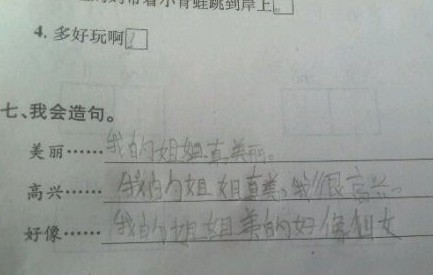 带着小青蛙跳到岸上
4. 多好玩啊
七、我会造句。
美丽……我的姐姐真美丽。
高兴……我的姐姐真美，我很高兴。
好像……我的姐姐美的好像仙女